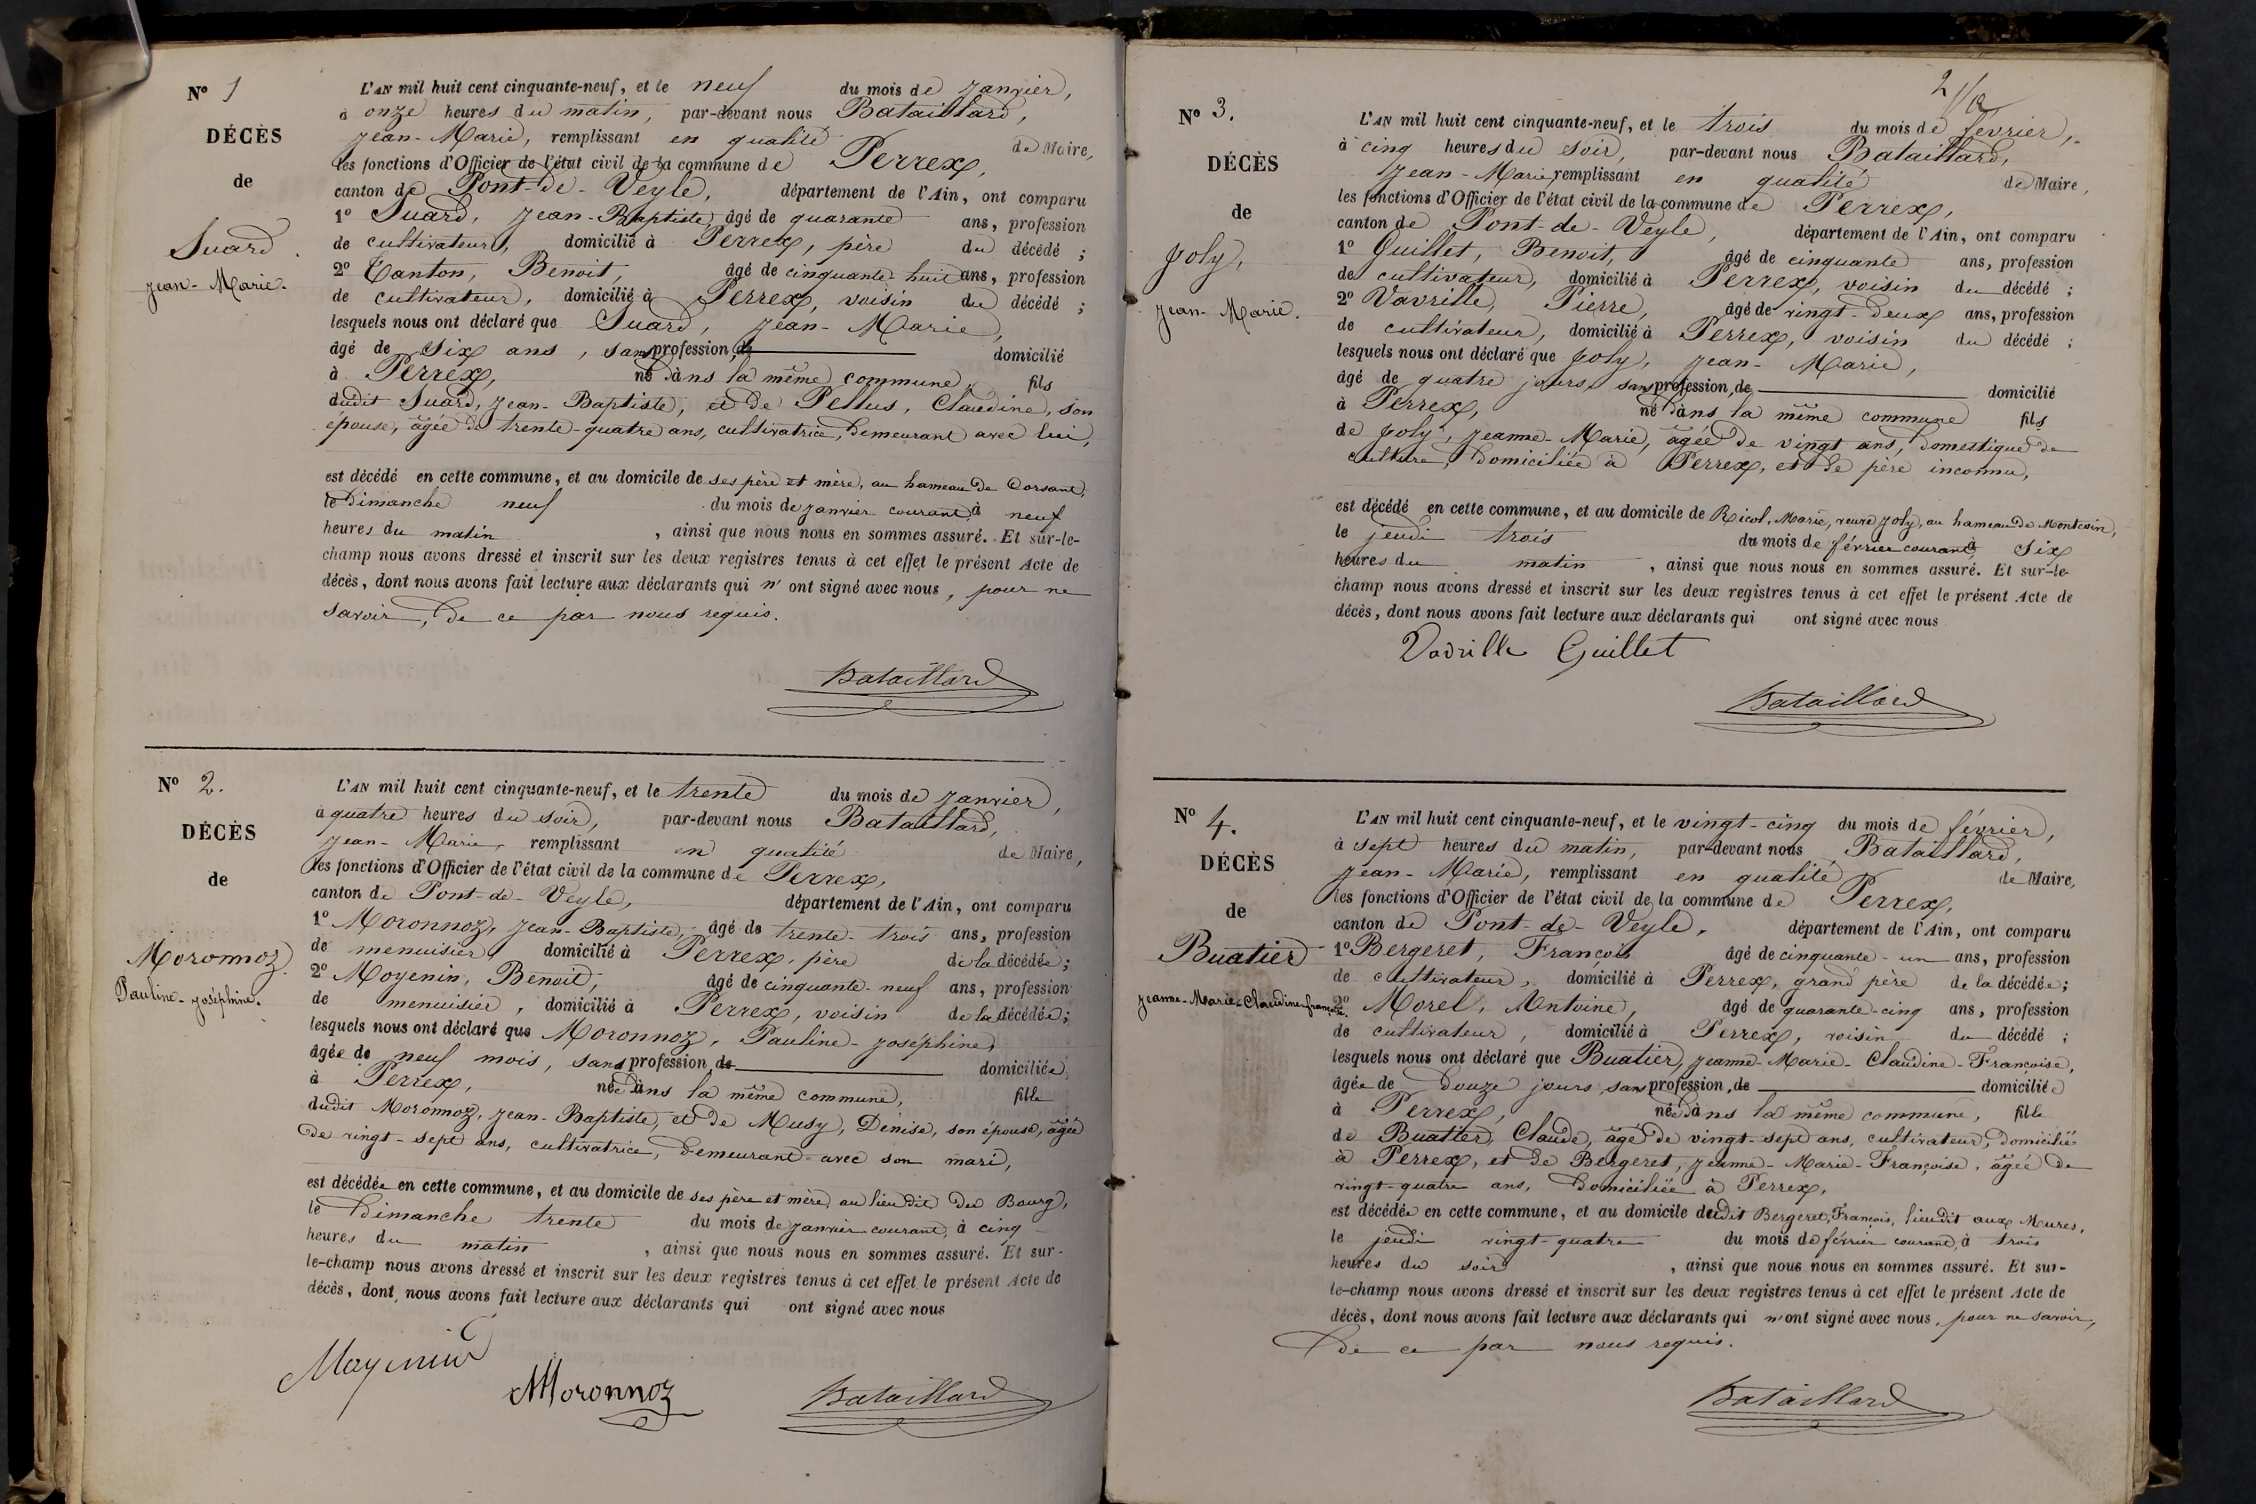 Nº 1
DÉCÈS
de
Suard
Jean-Marie.
L'AN mil huit cent cinquante-neuf, et le neuf du mois de Janvier,
à onze heures du matin, par-devant nous Bataillard,
Jean-Marie, remplissant en qualité de Maire,
les fonctions d'Officier de l'état civil de la commune de Perrex,
canton de Pont-de-Veyle, département de l'Ain, ont comparu
1º Suard, Jean-Baptiste, âgé de quarante ans, profession
de cultivateur, domicilié à Perrex, père du décédé ;
2º Canton, Benoit, âgé de cinquante-huit ans, profession
de cultivateur, domicilié à Perrex, voisin du décédé ;
lesquels nous ont déclaré que Suard, Jean-Marie,
âgé de six ans, sans profession, de domicilié
à Perrex, né dans la même commune, fils
dudit Suard, Jean-Baptiste, et de Pellus, Claudine, son
épouse, âgée de trente-quatre ans, cultivatrice, demeurant avec lui,
est décédé en cette commune, et au domicile de ses père et mère, au hameau de Corsant,
le dimanche neuf du mois de janvier courant, à neuf
heures du matin , ainsi que nous nous en sommes assuré. Et sur-le-
champ nous avons dressé et inscrit sur les deux registres tenus à cet effet le présent Acte de
décès, dont nous avons fait lecture aux déclarants qui n'ont signé avec nous, pour ne
savoir, de ce par nous requis.
Bataillard
Nº 2.
DÉCÈS
de
Moronnoz
Pauline-Joséphine.
L'AN mil huit cent cinquante-neuf, et le trente du mois de Janvier,
à quatre heures du soir, par-devant nous Bataillard,
Jean-Marie, remplissant en qualité de Maire,
les fonctions d'Officier de l'état civil de la commune de Perrex,
canton de Pont-de-Veyle, département de l'Ain, ont comparu
1º Moronnoz, Jean-Baptiste, âgé de trente-trois ans, profession
de menuisier domicilié à Perrex, père de la décédée ;
2º Moyenin, Benoit, âgé de cinquante-neuf ans, profession
de menuisier, domicilié à Perrex, voisin de la décédée ;
lesquels nous ont déclaré que Moronnoz, Pauline-Joséphine,
âgée de neuf mois, sans profession, de domiciliée
à Perrex, née dans la même commune, fille
dudit Moronnoz, Jean-Baptiste, et de Musy, Denise, son épouse, âgée
de vingt-sept ans, cultivatrice, demeurant avec son mari,
est décédée en cette commune, et au domicile de ses père et mère, au lieu dit du Bourg,
le dimanche trente du mois de janvier courant, à cinq
heures du matin , ainsi que nous nous en sommes assuré. Et sur-
le-champ nous avons dressé et inscrit sur les deux registres tenus à cet effet le présent Acte de
décès, dont nous avons fait lecture aux déclarants qui ont signé avec nous
Moyenin
Moronnoz
Bataillard
2
Nº 3.
DÉCÈS
de
Joly,
Jean-Marie.
L'AN mil huit cent cinquante-neuf, et le trois du mois de février,
à cinq heures du soir, par-devant nous Bataillard,
Jean-Marie, remplissant en qualité de Maire,
les fonctions d'Officier de l'état civil de la commune de Perrex,
canton de Pont-de-Veyle, département de l'Ain, ont comparu
1º Guillet, Benoit, âgé de cinquante ans, profession
de cultivateur, domicilié à Perrex, voisin du décédé ;
2º Vavrille, Pierre, âgé de vingt-deux ans, profession
de cultivateur, domicilié à Perrex, voisin du décédé ;
lesquels nous ont déclaré que Joly, Jean-Marie,
âgé de quatre jours, sans profession, de domicilié
à Perrex, né dans la même commune fils
de Joly, Jeanne-Marie, âgée de vingt ans, domestique de
culture, domiciliée à Perrex, et de père inconnu,
est décédé en cette commune, et au domicile de Ricol, Marie, veuve Joly, au hameau de Montcoin,
le jeudi trois du mois de février courant, à six
heures du matin , ainsi que nous nous en sommes assuré. Et sur-le-
champ nous avons dressé et inscrit sur les deux registres tenus à cet effet le présent Acte de
décès, dont nous avons fait lecture aux déclarants qui ont signé avec nous
Vavrille Guillet
Bataillard
Nº 4.
DÉCÈS
de
Buatier
Jeanne-Marie-Claudine-Françoise.
L'AN mil huit cent cinquante-neuf, et le vingt-cinq du mois de février,
à sept heures du matin, par-devant nous Bataillard,
Jean-Marie, remplissant en qualité de Maire,
les fonctions d'Officier de l'état civil de la commune de Perrex,
canton de Pont-de-Veyle, département de l'Ain, ont comparu
1º Bergeret, François âgé de cinquante-un ans, profession
de cultivateur, domicilié à Perrex, grand père de la décédée ;
2º Morel, Antoine, âgé de quarante-cinq ans, profession
de cultivateur, domicilié à Perrex, voisin du décédé ;
lesquels nous ont déclaré que Buatier, Jeanne-Marie-Claudine-Françoise,
âgée de douze jours, sans profession, de domiciliée
à Perrex, née dans la même commune, fille
de Buatier, Claude, âgé de vingt-sept ans, cultivateur, domicilié
à Perrex, et de Bergeret, Jeanne-Marie-Françoise, âgée de
vingt-quatre ans, domiciliée à Perrex,
est décédée en cette commune, et au domicile dudit Bergeret, François, lieudit aux Mures,
le jeudi vingt-quatre du mois de février courant, à trois
heures du soir , ainsi que nous nous en sommes assuré. Et sur-
le-champ nous avons dressé et inscrit sur les deux registres tenus à cet effet le présent Acte de
décès, dont nous avons fait lecture aux déclarants qui n'ont signé avec nous, pour ne savoir,
de ce par nous requis.
Bataillard